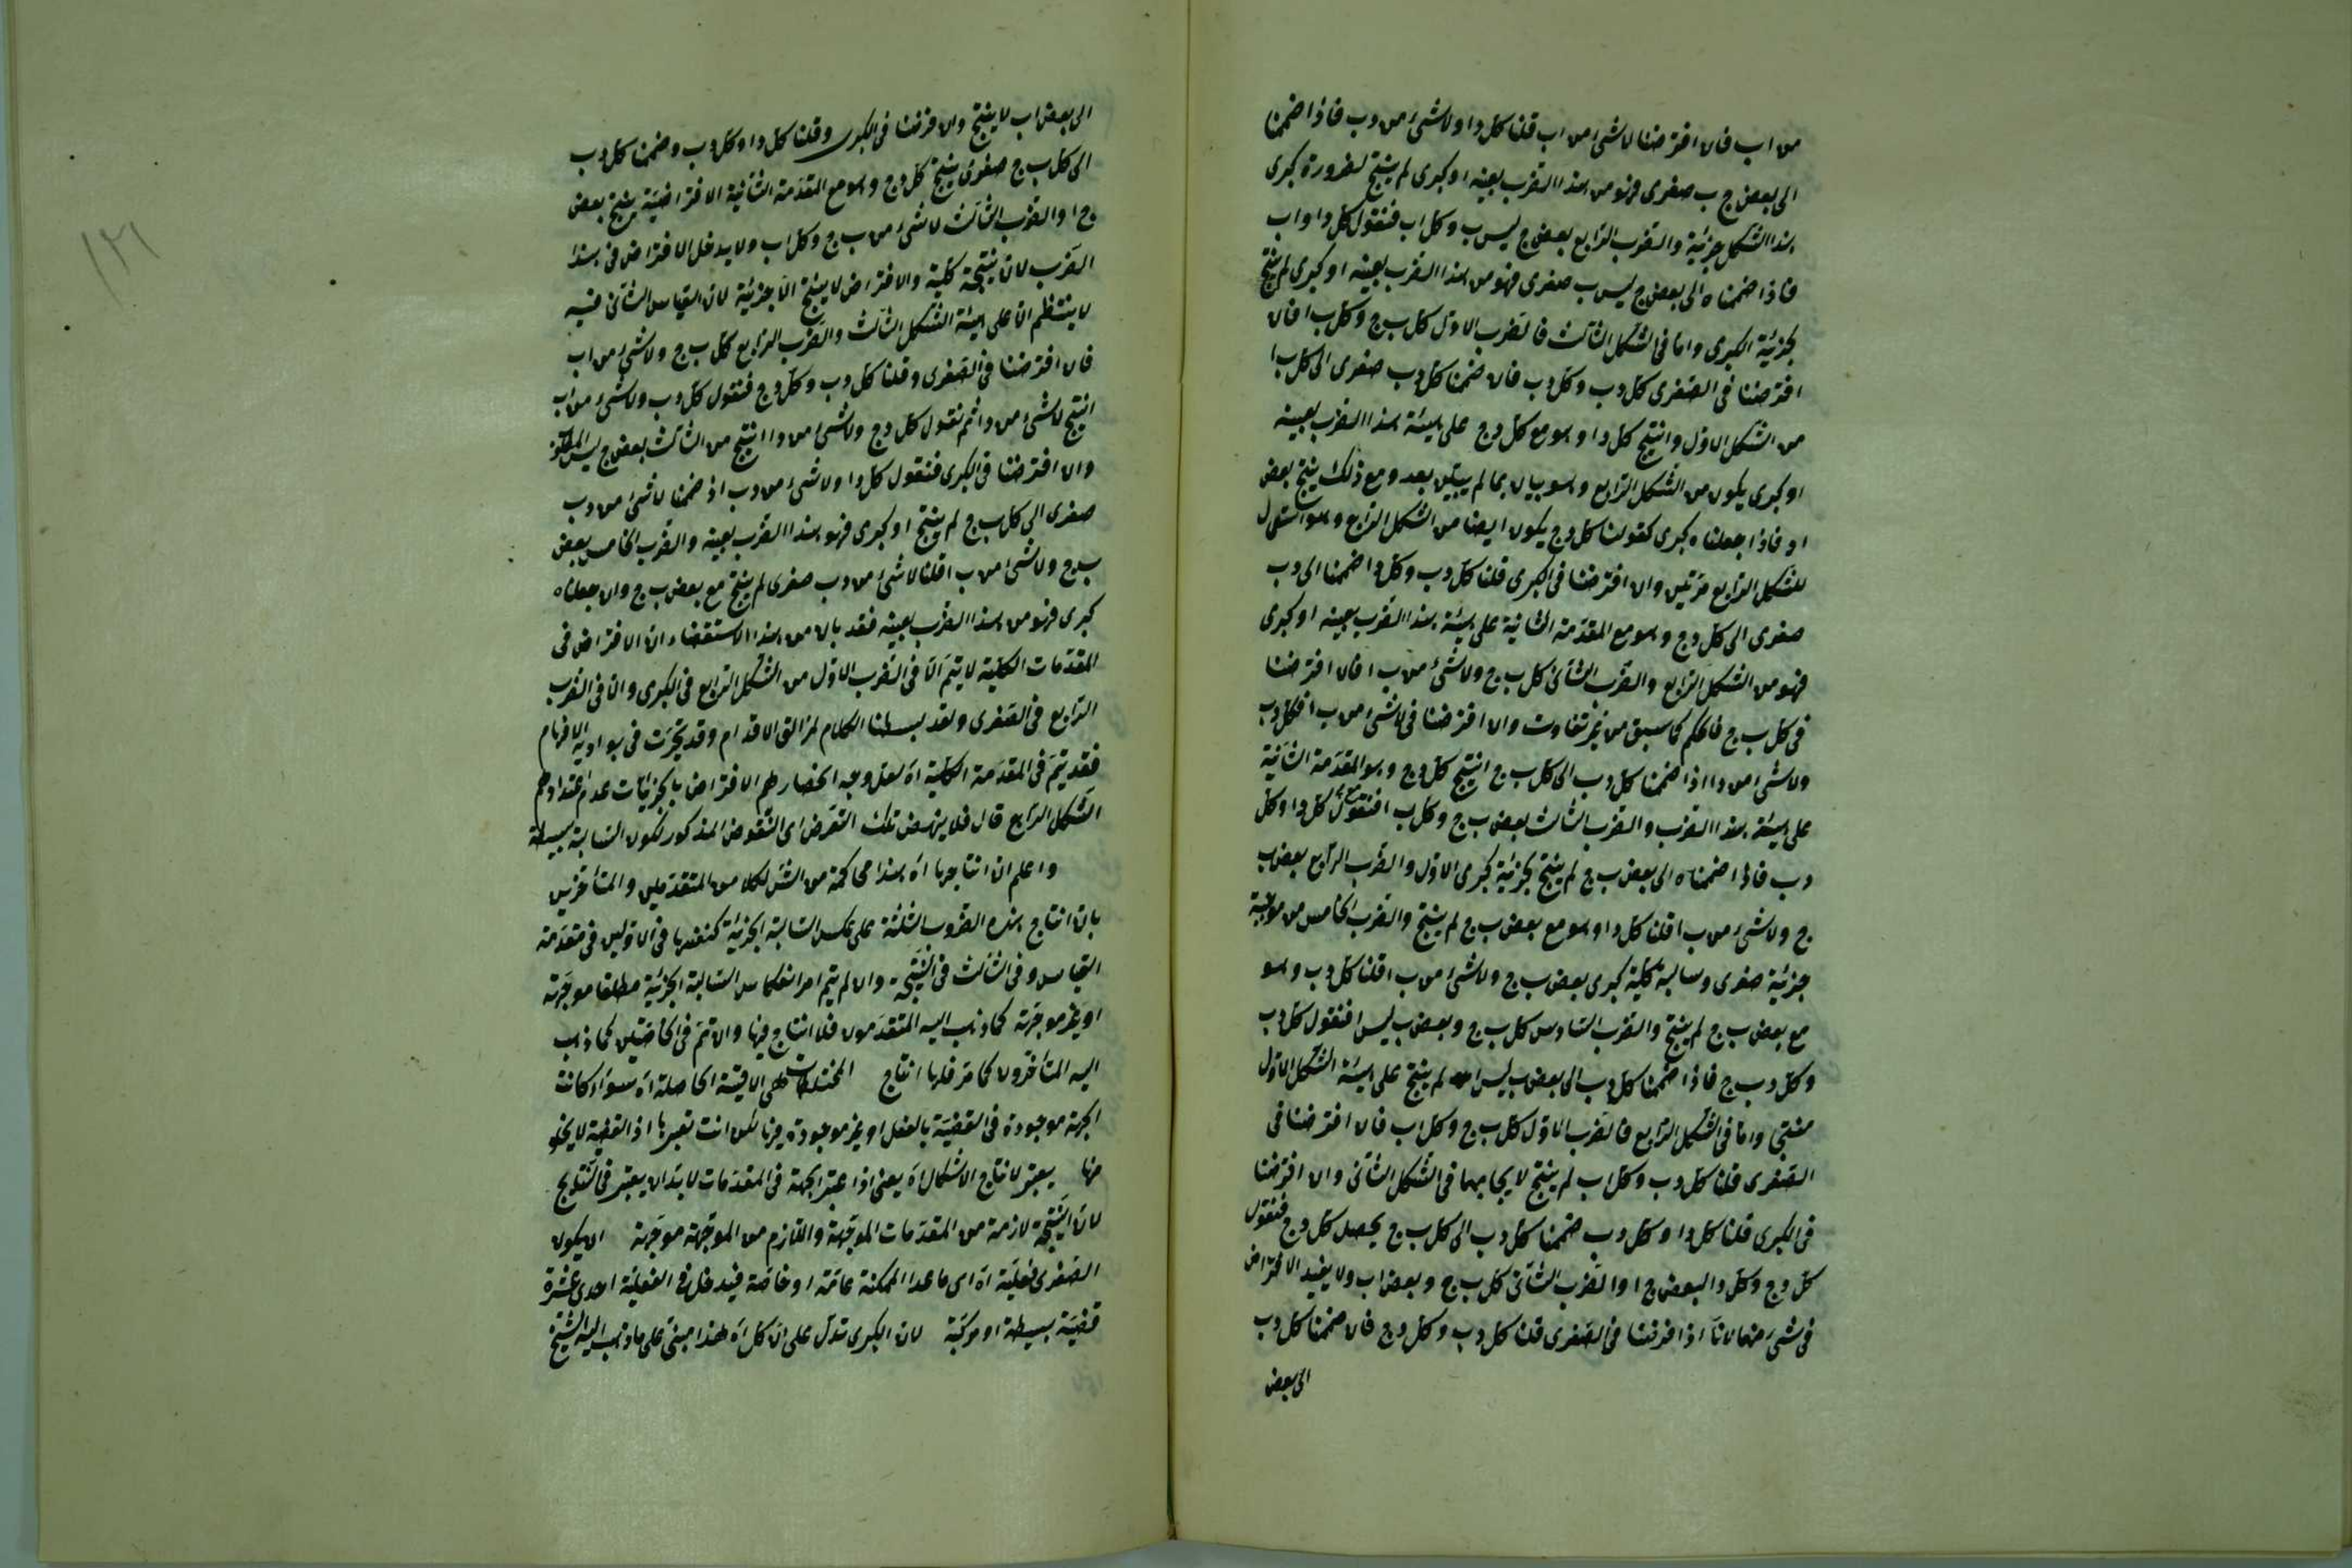 من اب فان افترضنا لا شئ من اب قلنا كل د ا ولا شئ من د ب فاذا ضممنا
الى بعض ج ب صغرى فهو من هذا الضرب بعينه او كبرى لم ينتج لضرورة كبرى
هذا الشكل جزئية والضرب الرابع بعض ج ليس ب وكل اب فنقول كل د ا و اب
فاذا ضممناه الى بعض ج ليس ب صغرى فهو من هذا الضرب بعينه او كبرى لم ينتج
لجزئية الكبرى واما فى الشكل الثالث فالضرب الاول كل ب ج وكل ب ا فان
افترضنا فى الصغرى كل د ب وكل د ب فان ضممنا كل د ب صغرى الى كل ب ا
من الشكل الاول وانتج كل د ا وهو مع كل د ج على هيئة هذا الضرب بعينه
او كبرى يكون من الشكل الرابع وهو بيان بما لم يبين بعد ومع ذلك ينتج بعض
ا د فاذا جعلناه كبرى كقولنا كل د ج يكون ايضا من الشكل الرابع وهو استعمال
للشكل الرابع مرتين وان افترضنا فى الكبرى قلنا كل د ب وكل د ا ضممنا الى د ب
صغرى الى كل د ج وهو مع المقدمة الثانية على هيئة هذا الضرب بعينه او كبرى
فهو من الشكل الرابع والضرب الثانى كل ب ج ولا شئ من ب ا فان افترضنا
فى كل ب ج فالحكم كما سبق من غير تفاوت وان افترضنا فى لا شئ من ب ا فكل د ب
ولا شئ من د ا اذا ضممنا كل د ب الى كل ب ج انتج كل د ج وهو المقدمة الثانية
على هيئة هذا الضرب والضرب الثالث بعض ب ج وكل ب ا فنقول كل د ا وكل
د ب فاذا ضممناه الى بعض ب ج لم ينتج لجزئية كبرى الاول والضرب الرابع بعض ب
ج ولا شئ من ب ا قلنا كل د ا وهو مع بعض ب ج لم ينتج والضرب الخامس من موجبة
جزئية صغرى وسالبة كلية كبرى بعض ب ج ولا شئ من ب ا قلنا كل د ب وهو
مع بعض ب ج لم ينتج والضرب السادس كل ب ج وبعض ب ليس ا فنقول كل د ب
وكل د ب ج فاذا ضممنا كل د ب الى بعض ب ليس ا لم ينتج على هيئة الشكل الاول
منتجى واما فى الشكل الرابع فالضرب الاول كل ب ج وكل اب فان افترضنا فى
الصغرى قلنا كل د ب وكل اب لم ينتج لايجابهما فى الشكل الثانى وان افترضنا
فى الكبرى قلنا كل د ا وكل د ب ضممنا كل د ب الى كل ب ج يحصل كل د ج فنقول
كل د ج وكل د ا لبعض ج ا والضرب الثانى كل ب ج وبعض اب ولا يفيد الافتراض
فى شئ منهما لانا اذا فرضنا فى الصغرى قلنا كل د ب وكل د ج فان ضممنا كل د ب
الى بعض
الى بعض اب لا ينتج وان فرضنا فى الكبرى وقلنا كل د ا وكل د ب وضممنا كل د ب
الى كل ب ج صغرى ينتج كل د ج وهو مع المقدمة الثانية الافتراضية ينتج بعض
ج ا والضرب الثالث لا شئ من ب ج وكل اب ولا يدخل الافتراض فى هذا
الضرب لان نتيجة كلية والافتراض لا ينتج الا جزئية لان القياس الثانى فيه
لا ينتظم الا على هيئة الشكل الثالث والضرب الرابع كل ب ج ولا شئ من اب
فان افترضنا فى الصغرى وقلنا كل د ب وكل د ج فنقول كل د ب ولا شئ من اب
انتج لا شئ من د ا ثم نقول كل د ج ولا شئ من د ا انتج من الثالث بعض ج ليس ا المط
وان افترضنا فى الكبرى فنقول كل د ا ولا شئ من د ب اذ ضممنا لا شئ من د ب
صغرى الى كل ب ج لم ينتج او كبرى فهو هذا الضرب بعينه والضرب الخامس بعض
ب ج ولا شئ من ب ا قلنا لا شئ من د ب صغرى لم ينتج مع بعض ب ج وان جعلناه
كبرى فهو من هذا الضرب بعينه فقد بان من هذا الاستقصاء ان الافتراض فى
المقدمات الكلية لا يتم الا فى الضرب الاول من الشكل الرابع فى الكبرى والا فى الضرب
الرابع فى الصغرى ولقد بسطنا الكلام لمزالق الاقدام وقد تحيرت فى بواديه الافهام
فقد يتم فى المقدمة الكلية اه لعل وجه انحصارهم الافتراض بالجزئيات عدم اعتدادهم
الشكل الرابع قال فلا ينهض تلك النقوض اى النقوض المذكور لكون السالبة بسيطة
واعلم ان انتاجها اه هذا محاكمة من الش لكلا من المتقدمين والمتأخرين
بان انتاج هذه الضروب الثلثة على عكس السالبة الجزئية كنفعها فى الاولين فى مقدمة
القياس وفى الثالث فى النتيجة وان لم يتم امر انعكاس السالبة الجزئية مطلقا موجهة
او غير موجهة كما ذهب اليه المتقدمون فلا انتاج فيها وان تم فى الخاصتين كما ذهب
اليه المتأخرون كما مر فلها انتاج المختلطات هى الاقيسة الحاصلة اه سواء كانت
الجهة موجودة فى القضية بالفعل او غير موجودة فيها لكن انت تعبرها اذ القضية لا يخلو
منها يعتبر لانتاج الاشكال اه يعنى اذا اعتبر الجهة فى المقدمات لا بد ان يعتبر فى النتايج
لان النتيجة لازمة من المقدمات الموجهة واللازم من الموجهة موجهة ان يكون
الصغرى فعلية اه اى ما عدا الممكنة عامة او خاصة فيدخل فى الفعلية احدى عشرة
قضية بسيطة او مركبة لان الكبرى تدل على ان كل اه هذا مبنى على ما ذهب اليه الشيخ
١٢١